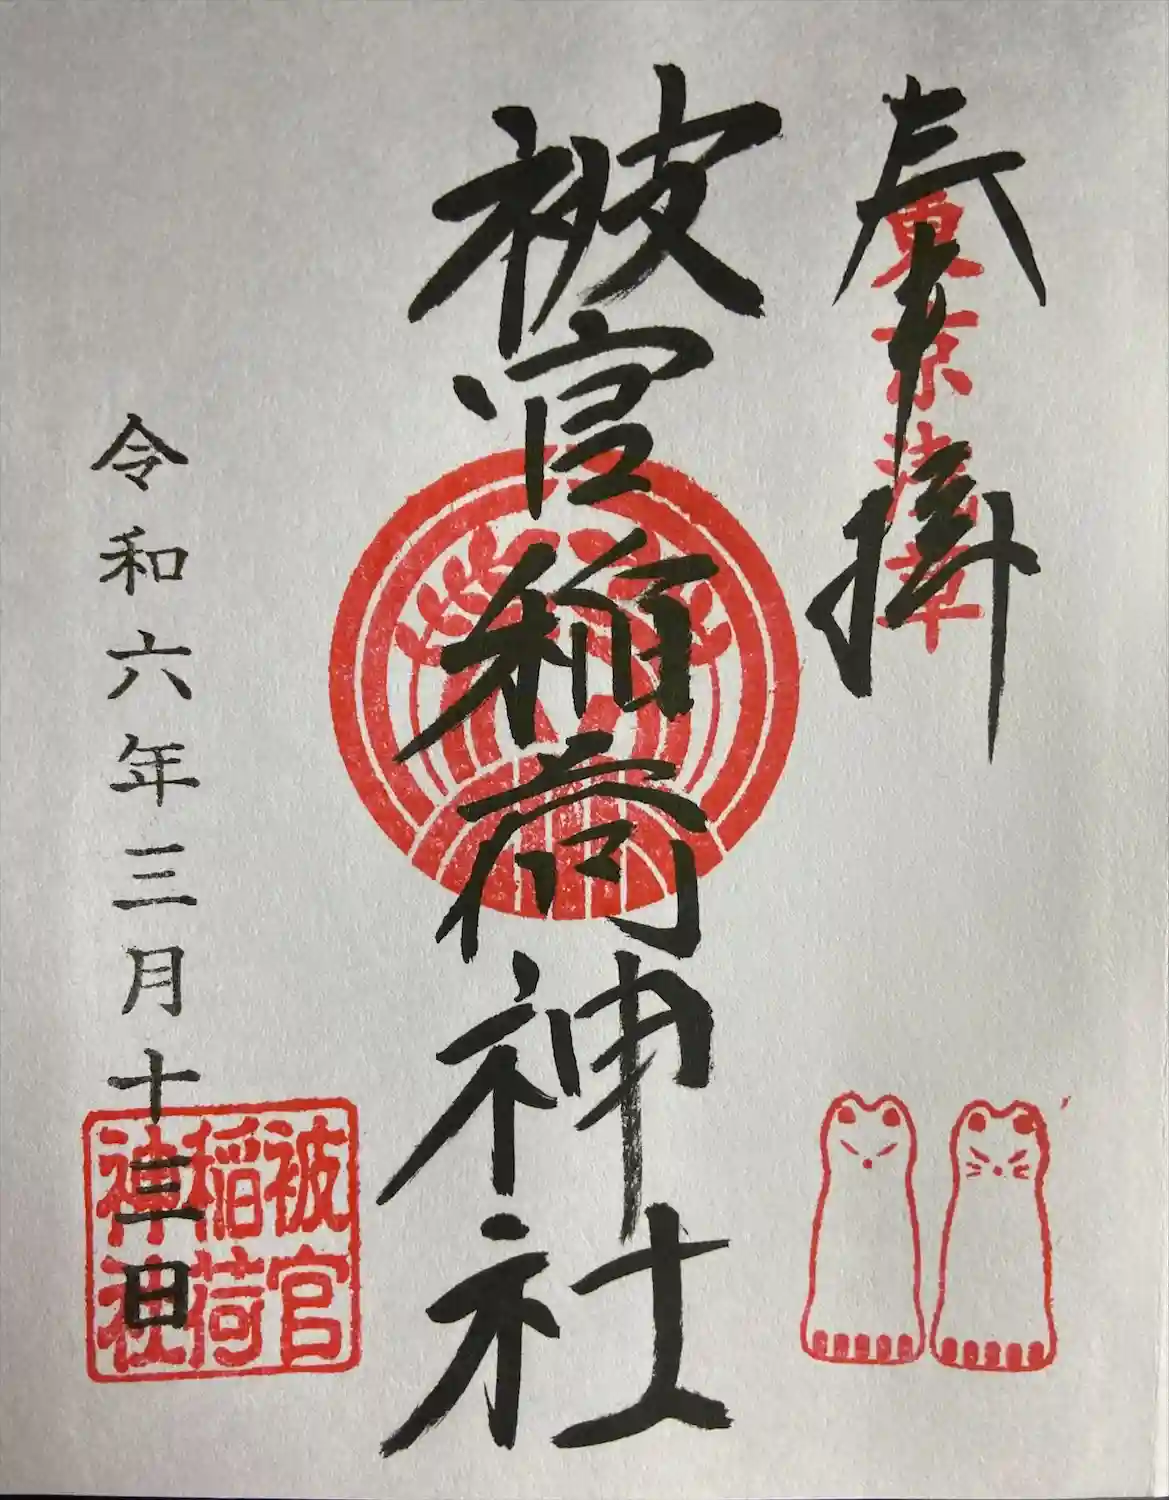 奉拝
東京浅草
被官稲荷神社
被官
稲荷
神社
令和六年三月十三日